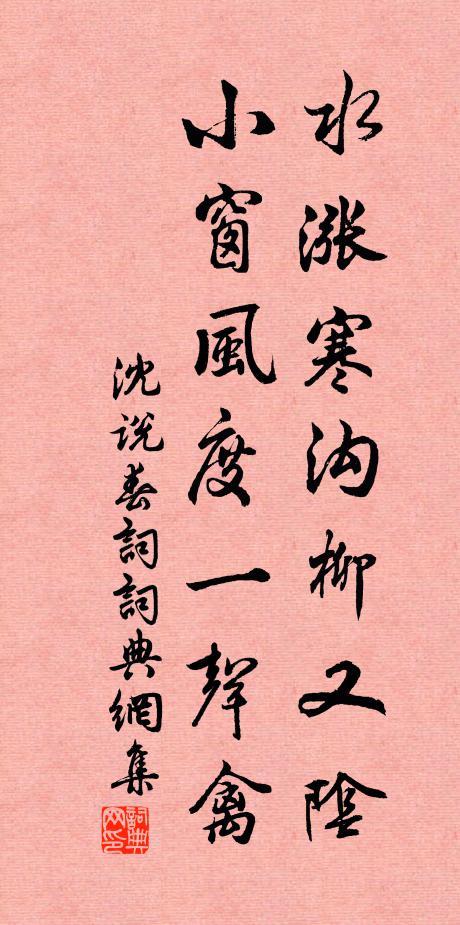 水漲寒沟柳又陰
小窗風度一聲禽
沈说春詞詞典網集
詞典网印